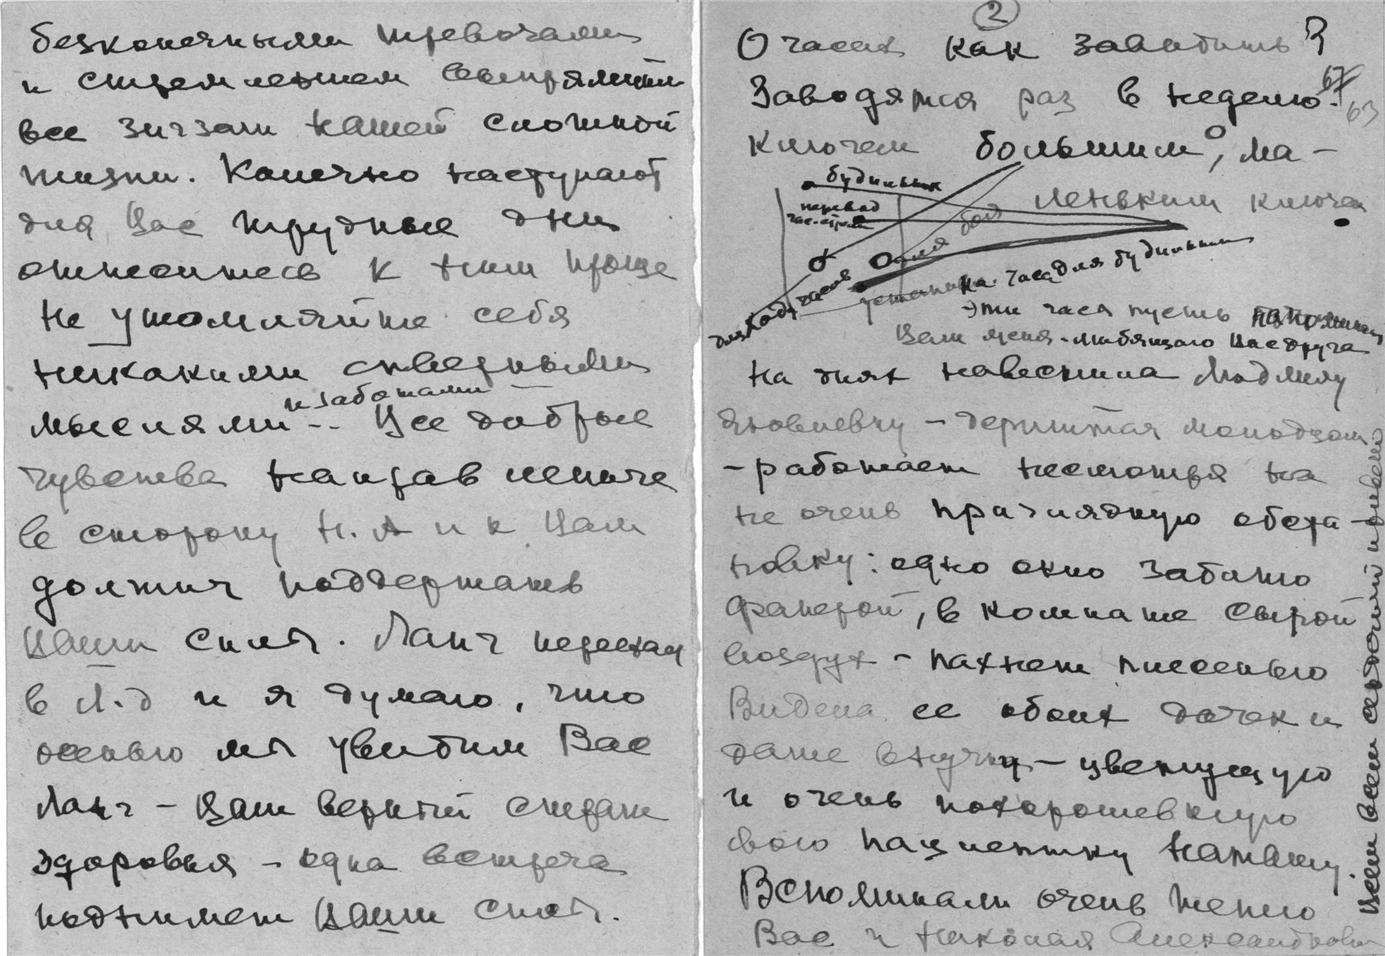 безконечными тревогами
и стремлением выпрямить
все зигзаги нашей сложной
жизни. Конечно наступают
для Вас трудные дни
отнеситесь к ним проще
не утомляйте себя
никакими скверными
мыслями и заботами -- Все добрые
чувства направленные
в сторону Н. А и к Вам
должны поддержать
Ваши силы. Ланг переехал
в Л-д и я думаю, что
осенью мы увидим Вас
Ланг - Ваш верный страж
здоровья - одна встреча
поднимет Ваши силы.
2
О часах как заводить?
Заводятся раз в неделю.
67
63
Ключем большим, ма-
леньким ключем
будильник
перевод
час. стрел
для боя
для хода часов
установка часа для будильника
Эти часы пусть напоминают
Вам меня - любящего Вас друга
На днях навестила Людмилу
Яковлевну - держится молодцом
- работает несмотря на
не очень праглядную обста-
новку: одно окно забито
фанерой, в комнате сырой
воздух - пахнет плесенью
Видела ее обоих дочек и
даже внучку - цветущую
и очень похорошевшую
свою пациентку Наташу.
Вспоминали очень тепло
Вас и Николая Александровича
Всем Всем сердечный привет